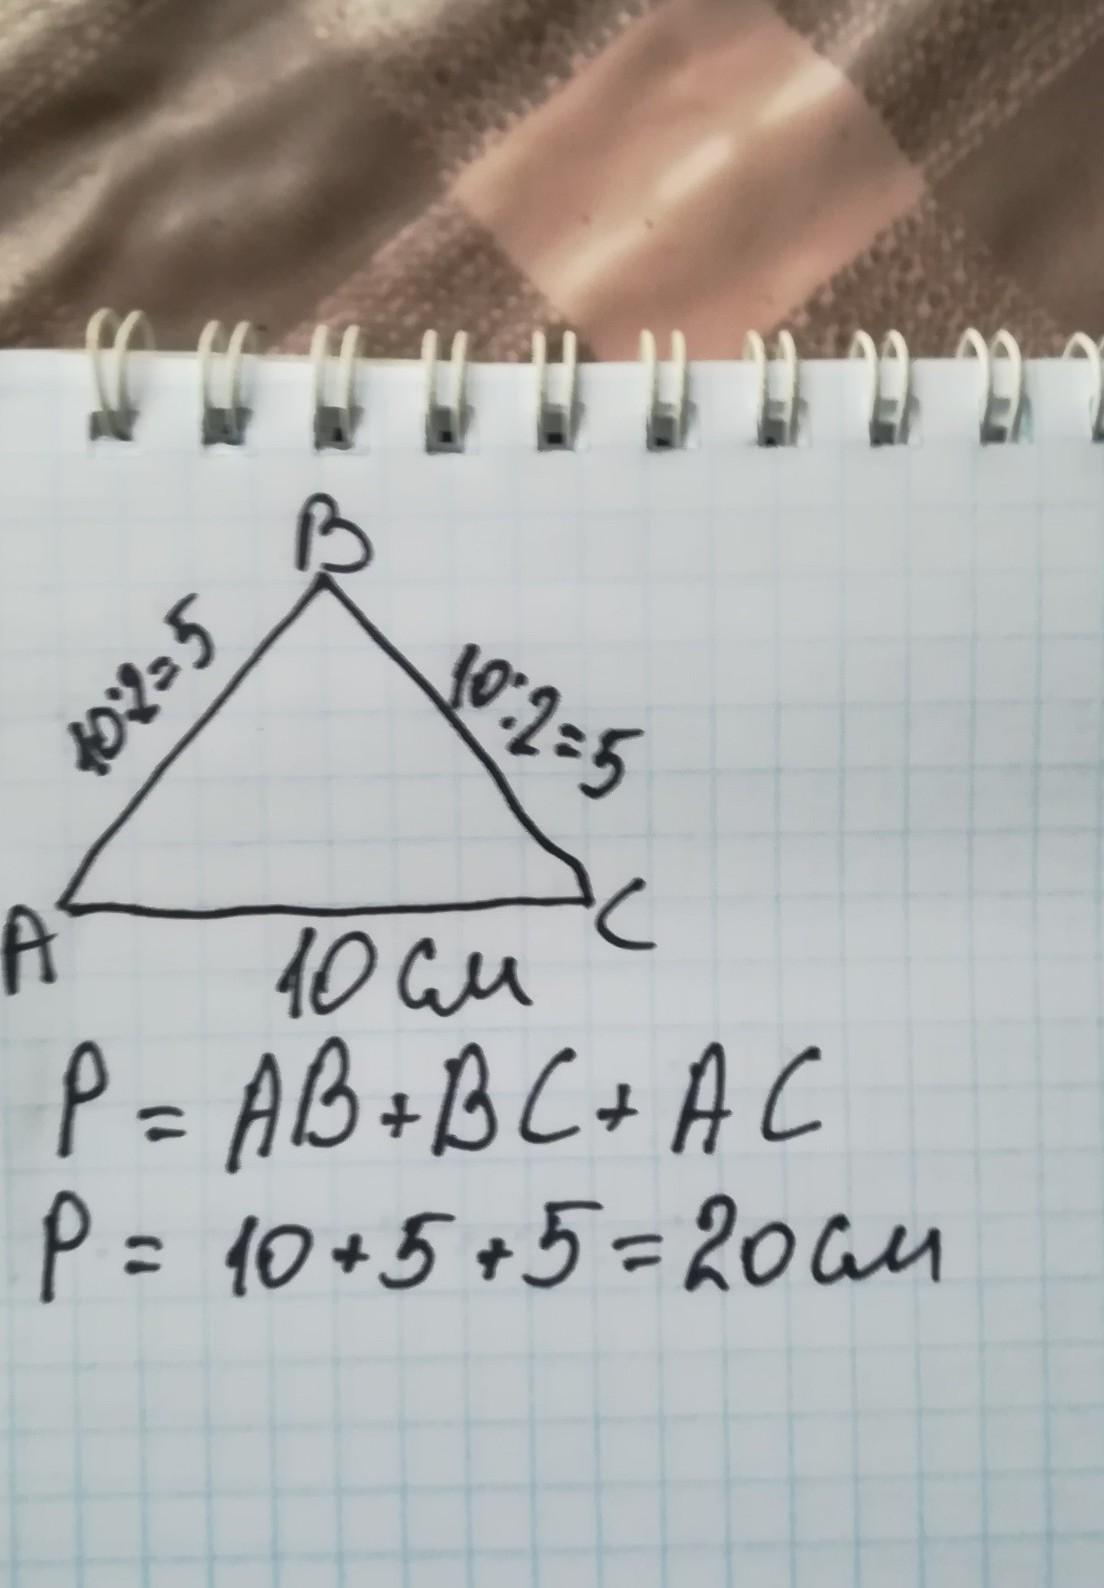 B
10:2=5
10:2=5
A
C
10 см
P = AB+BC+AC
P = 10+5+5=20см